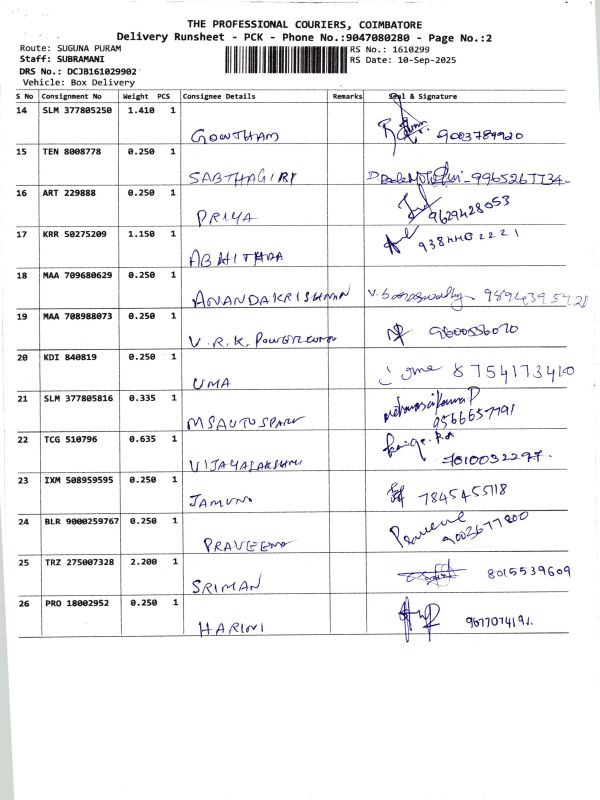 THE PROFESSIONAL COURIERS, COIMBATORE
Delivery Runsheet - PCK - Phone No.:9047080280 - Page No.:2
Route: SUGUNA PURAM
RS No.: 1610299
Staff: SUBRAMANI
RS Date: 10-Sep-2025
DRS No.: DCJB161029902
Vehicle: Box Delivery
S No Consignment No Weight PCS Consignee Details Remarks Seal & Signature
14 SLM 377805250 1.410 1
GOWTHAM 9003789920
15 TEN 8008778 0.250 1
SABTHAGIRI 9965267734
16 ART 229888 0.250 1
PRIYA 9629428053
17 KRR 50275209 1.150 1
ABHITHAA 9384402221
18 MAA 709680629 0.250 1
ANANDAKRISHNAN 9894395728
19 MAA 708988073 0.250 1
V.R.K. 9600556070
20 KDI 840819 0.250 1
UMA 8754173410
21 SLM 377805816 0.335 1
MSAUTOSPARK 9566657791
22 TCG 510796 0.635 1
VIJAYALAKSHMI 7010032297.
23 IXM 508959595 0.250 1
JAMUNA 7845455118
24 BLR 9000259767 0.250 1
PRAVEENA Praveene 9003677800
25 TRZ 275007328 2.200 1
SRIMAN 8015539609
26 PRO 18002952 0.250 1
HARINI 9677074191.